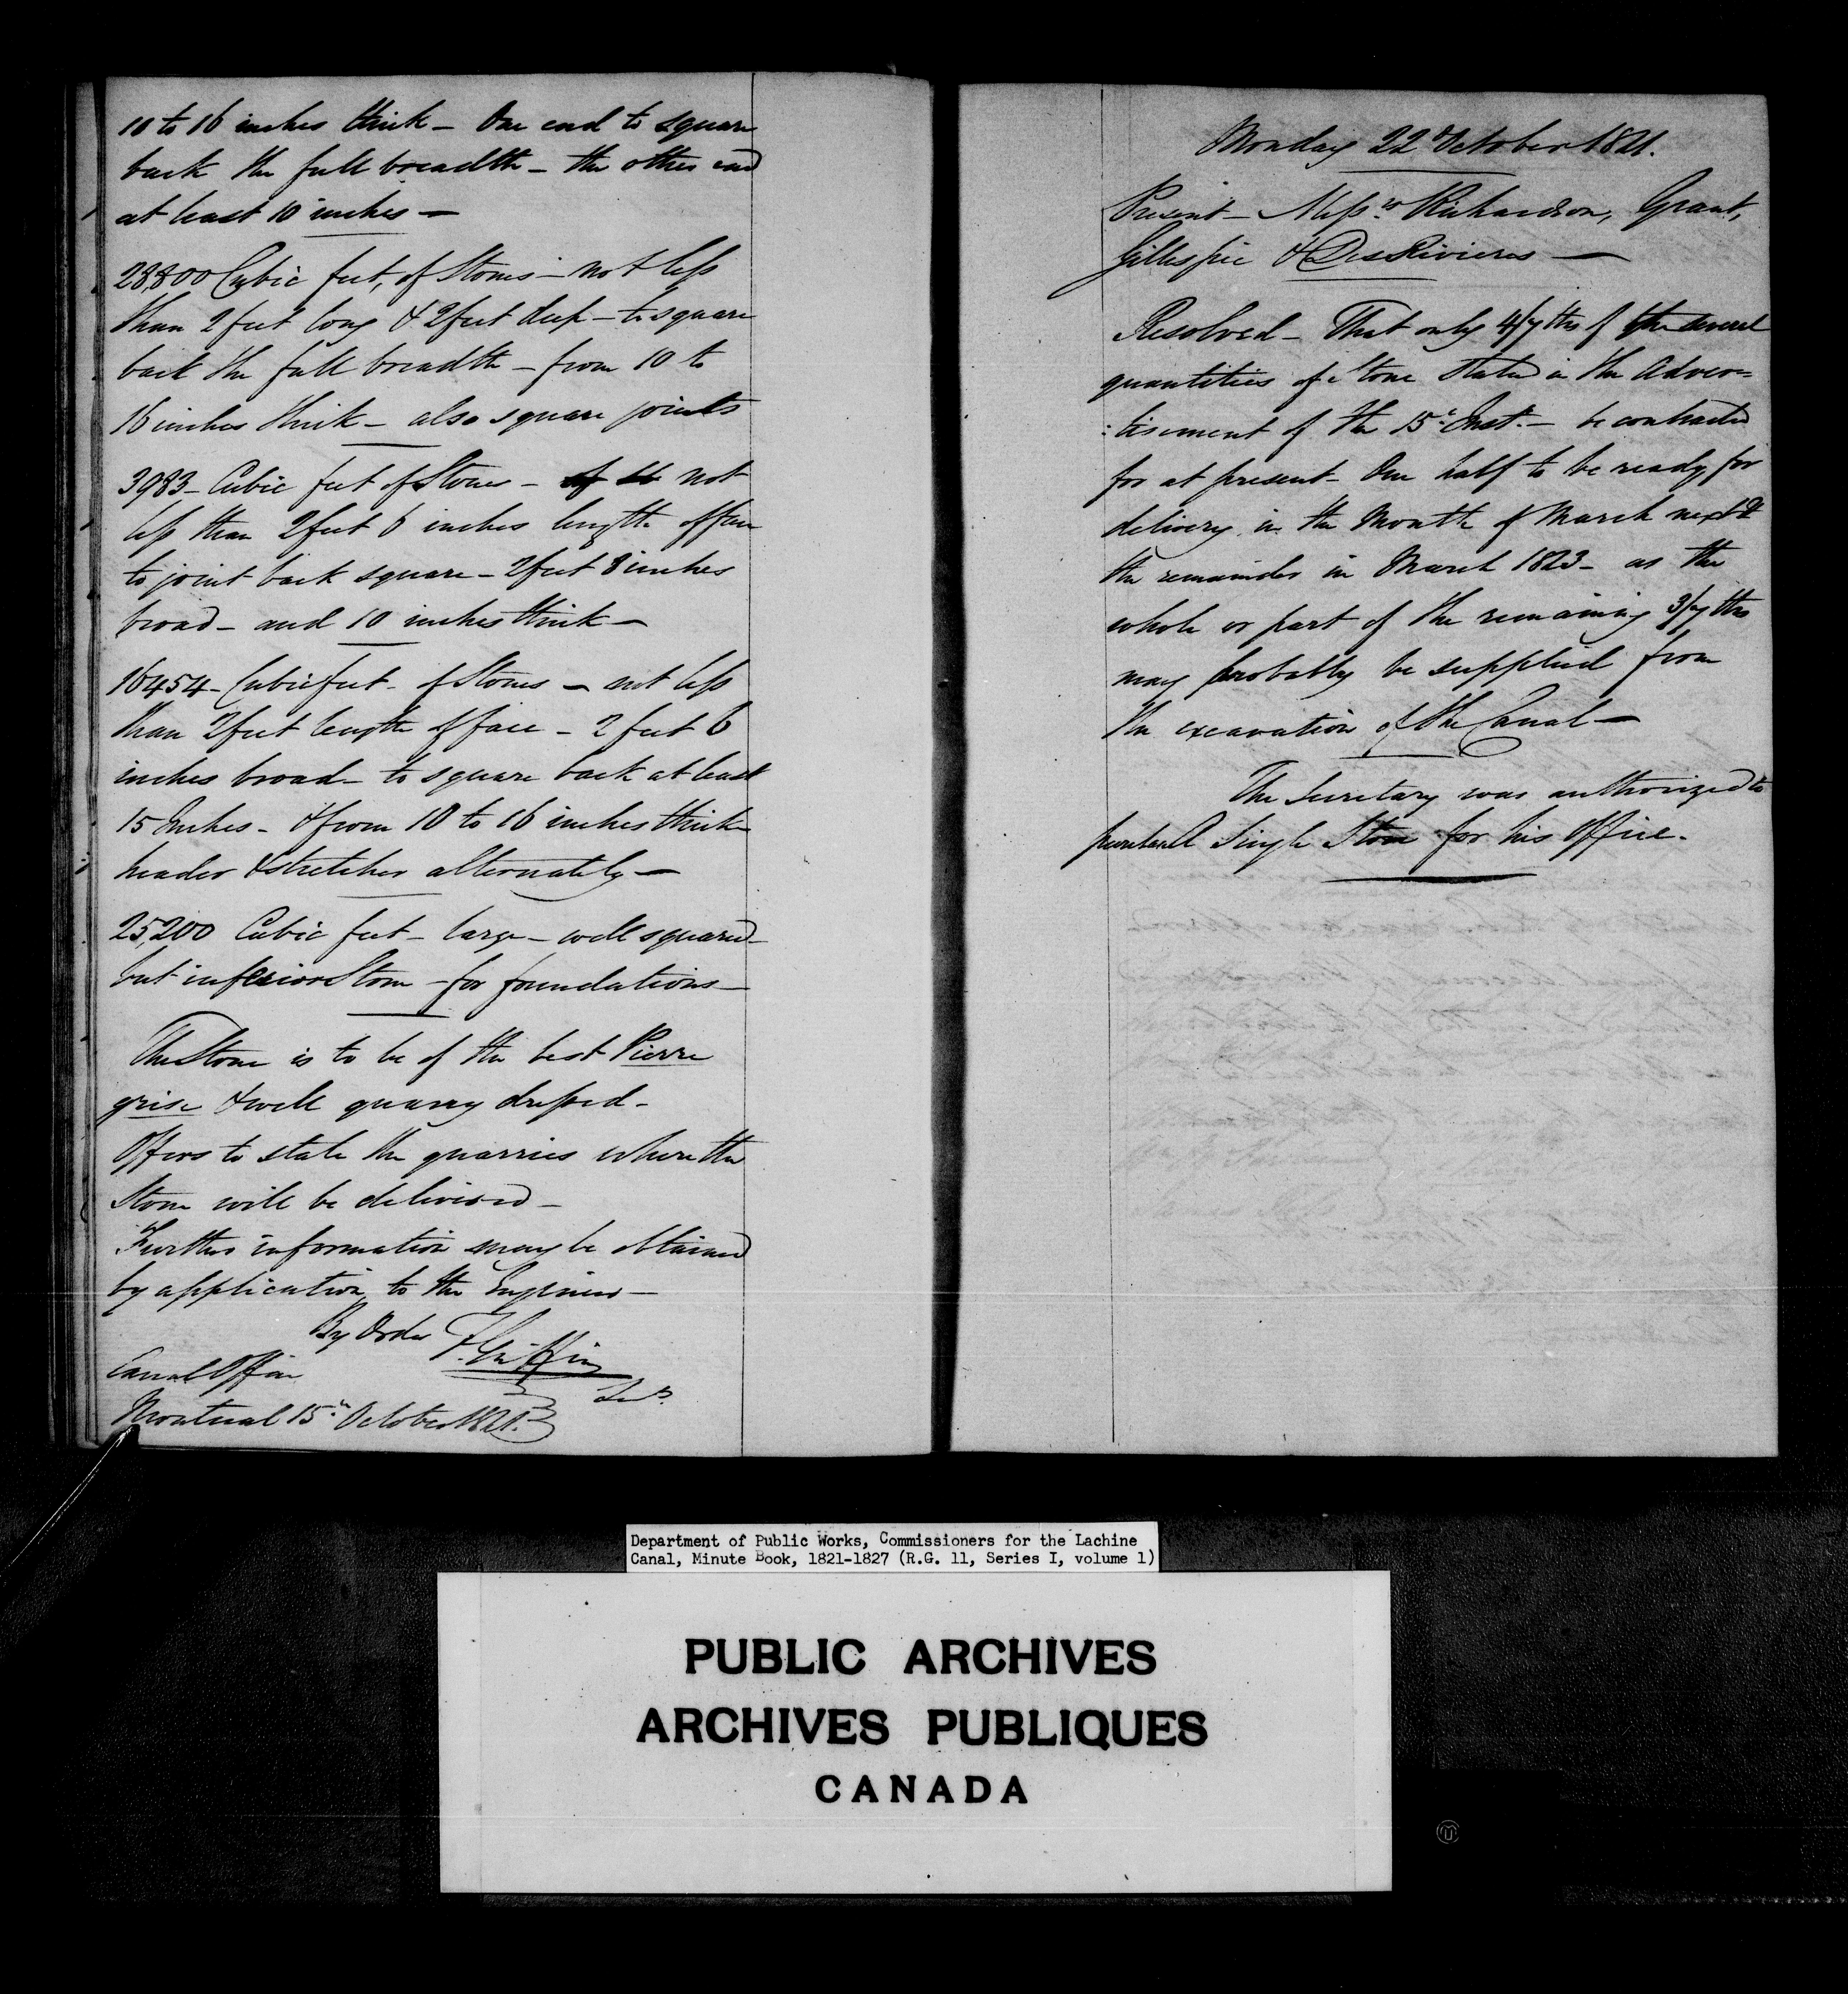 10 to 16 inches thick - One end to square
back the full breadth - the other end
at least 10 inches -
28,800 Cubic feet, of Stones - not less
than 2 feet long & 2 feet deep - to square
back the full breadth - from 10 to
16 inches thick - also square joints
3983 - Cubic feet of Stones - not
less than 2 feet 6 inches length of face
to joint back square - 2 feet 8 inches
broad - and 10 inches thick -
16454 - Cubic feet - of Stones - not less
than 2 feet length of face - 2 feet 6
inches broad - to square back at least
15 Inches - & from 10 to 16 inches thick -
header & stretcher alternately -
25,200 Cubic feet - large - well squared -
but inferior Stone - for foundations -
The Stone is to be of the best Pierre
grise & well quarry dressed -
Offers to state the quarries where the
Stone will be delivered -
Further information may be obtained
by application to the Engineer -
By Order F. Griffin
Canal Office
Secy.
Montreal 15th October 1821.
Monday 22d October 1821.
Present - Messrs Richardson, Grant,
Gillespie & DesRivieres -
Resolved - That only 4/7ths of the several
quantities of Stone stated in the Adver=
:tisement of the 15th Inst. - be contracted
for at present - One half to be ready for
delivery in the Month of March next &
the remainder in March 1823 - as the
whole or part of the remaining 3/7ths
may probably be supplied from
the excavation of the Canal -
The Secretary was authorized to
purchase A Single Stove for his Office -
Department of Public Works, Commissioners for the Lachine
Canal, Minute Book, 1821-1827 (R.G. 11, Series I, volume 1)
PUBLIC ARCHIVES
ARCHIVES PUBLIQUES
CANADA